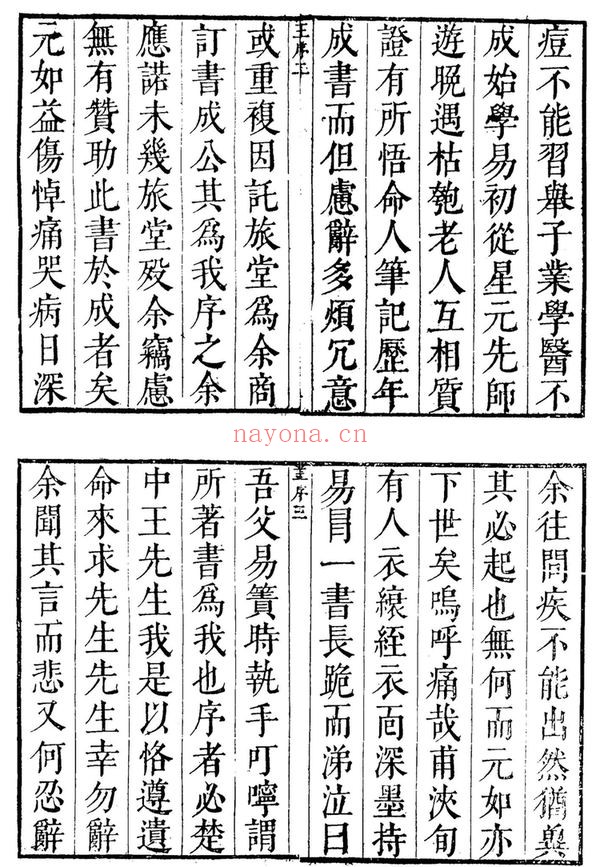 痘不能習舉子業學醫不
成始學易初從星元先師
遊晩遇枯匏老人互相質
證有所悟命人筆記歷年
成書而但慮辭多煩冗意
王序二
或重複因託旅堂爲余商
訂書成公其爲我序之余
應諾未幾旅堂殁余竊慮
無有贊助此書於成者矣
元如益傷悼痛哭病日深
nayona.cn
余往問疾不能出然猶兾
其必起也無何而元如亦
下世矣嗚呼痛哉甫浹旬
有人衣縗絰衣面深墨持
易冐一書長跪而涕泣曰
王序三
吾父易簀時執手叮嚀謂
所著書爲我也序者必楚
中王先生我是以恪遵遺
命來求先生先生幸勿辭
余聞其言而悲又何忍辭